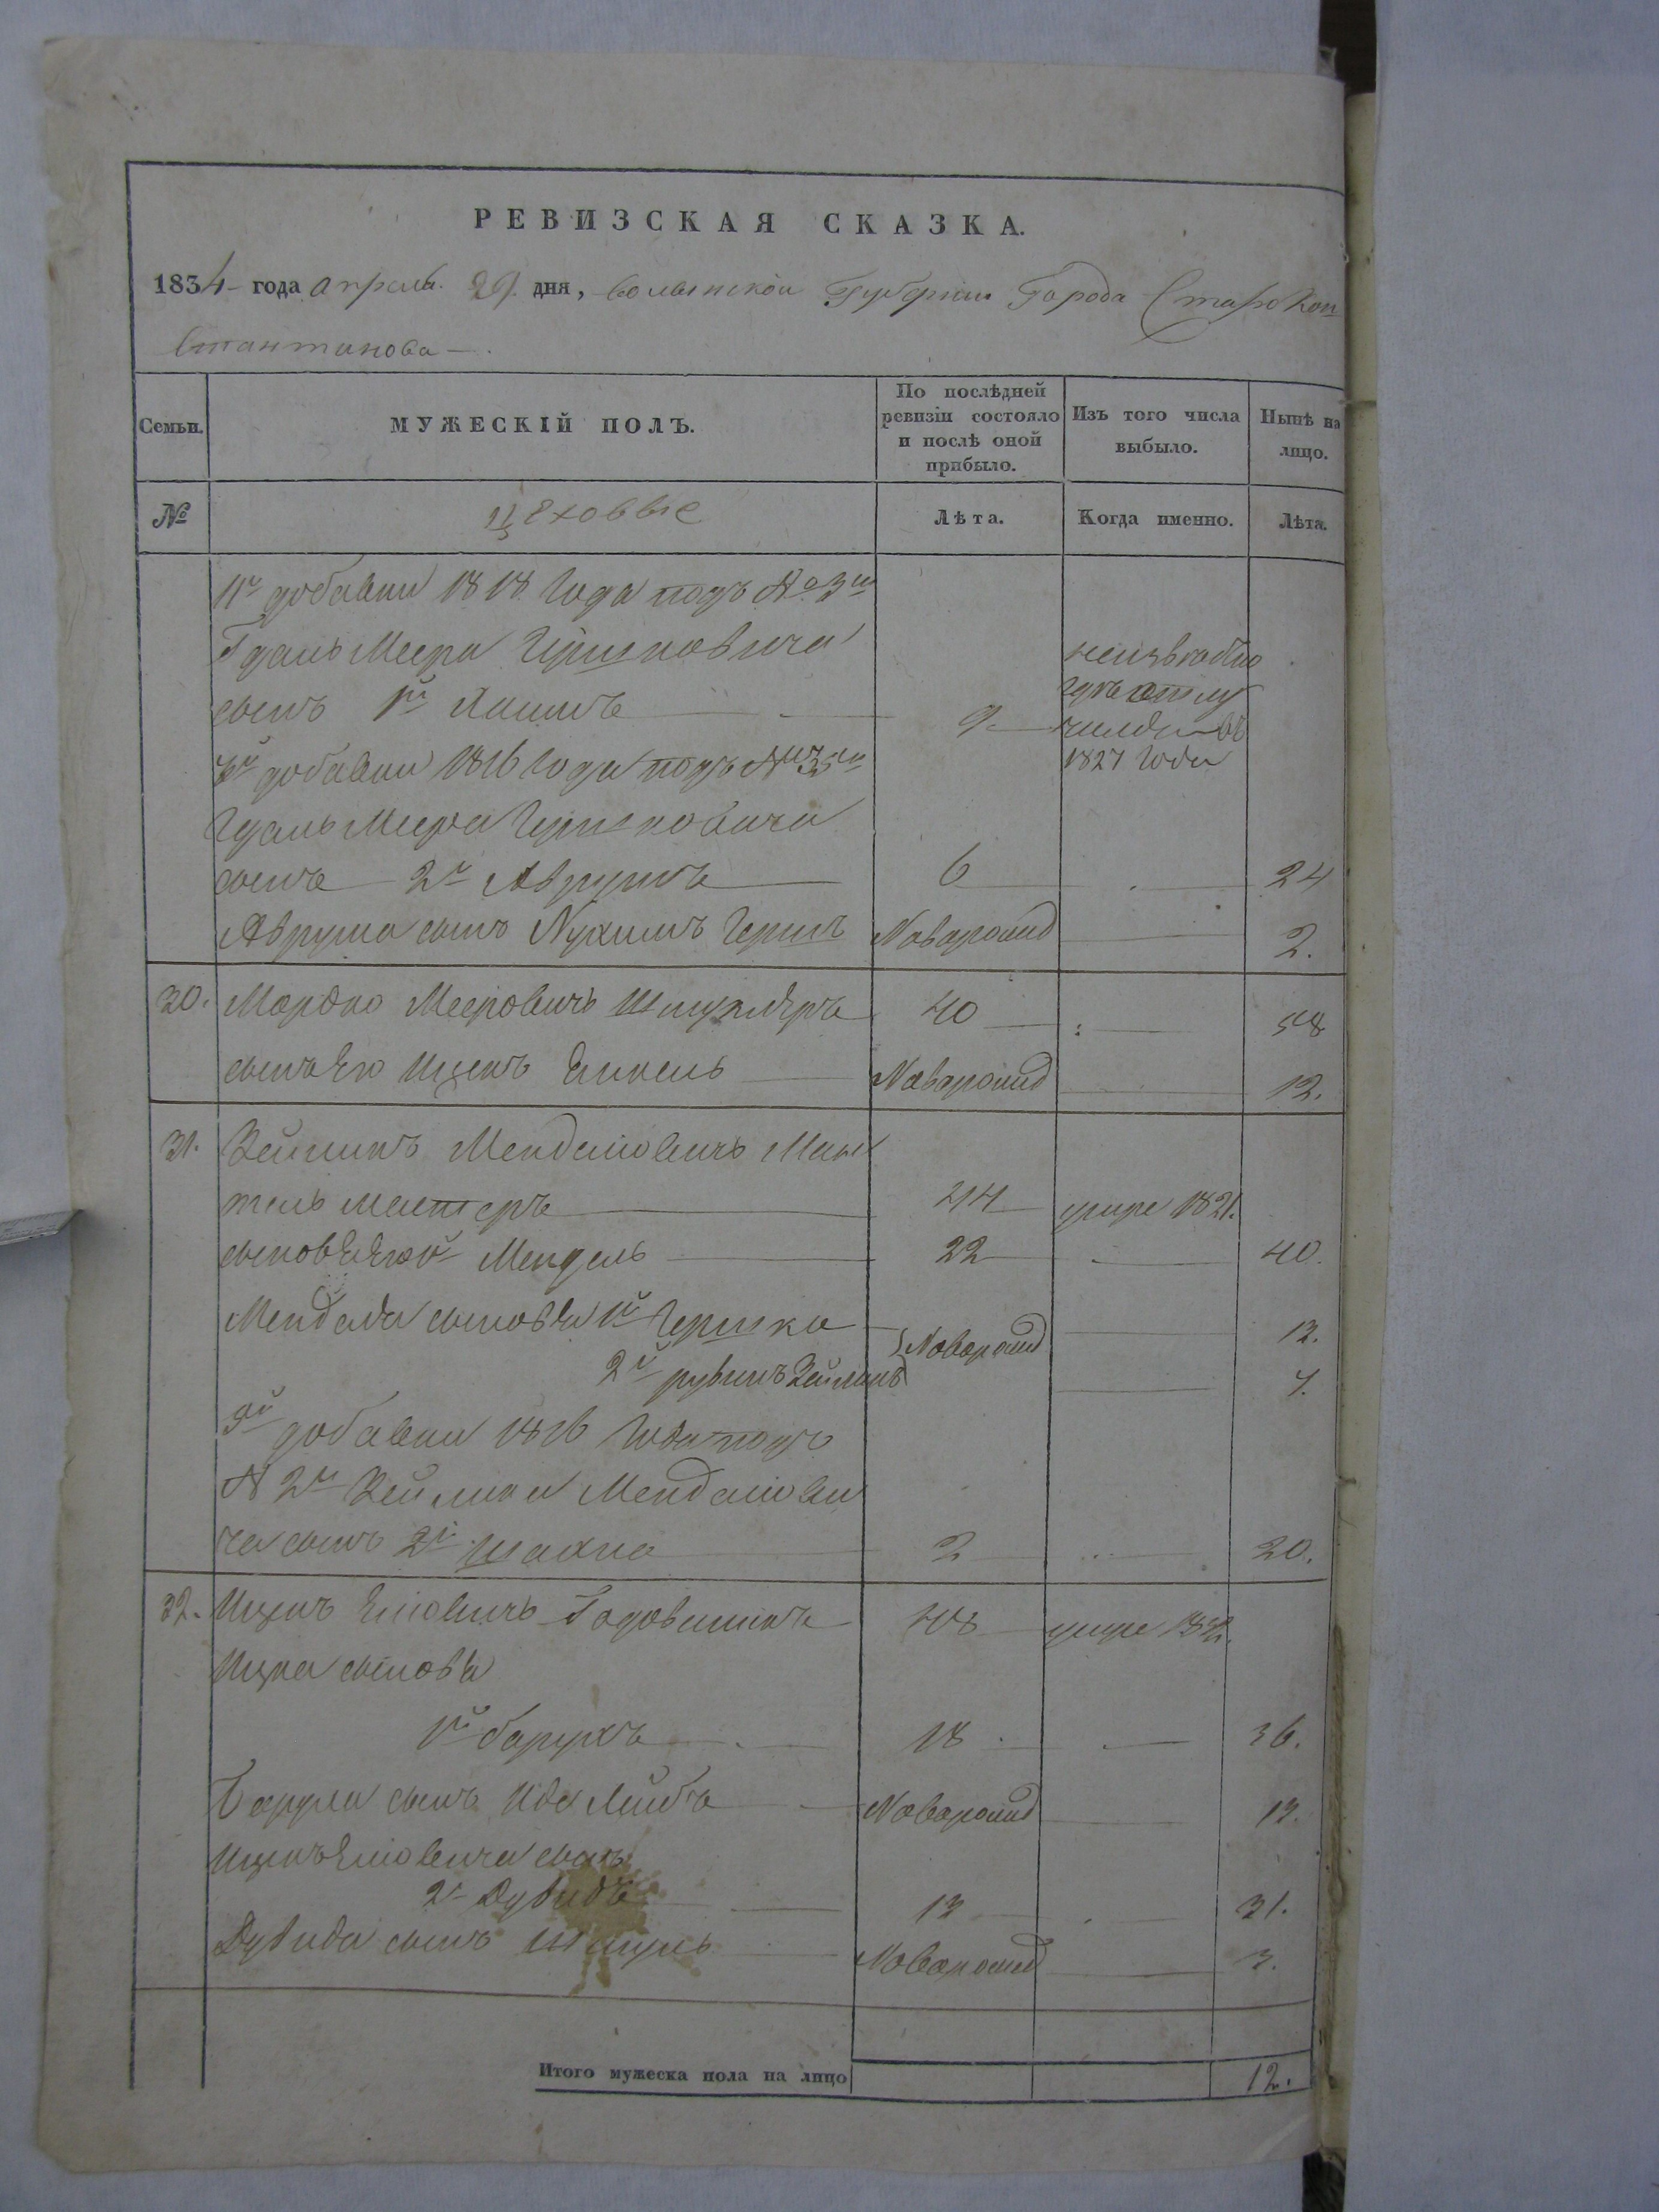 РЕВИЗСКАЯ СКАЗКА.
1834 года апреля 29 дня, волынской Губернии Города Старокон
стантинова
Семьи.
МУЖЕСКІЙ ПОЛЪ.
По послѣдней ревизіи состояло и послѣ оной прибыло.
Изъ того числа выбыло.
Нынѣ на лицо.
№
цеховые
Лѣта.
Когда именно.
Лѣта.
добавки 1818 года подъ № 3м
Гдаль Меера Гершковича
сынъ 1й
9
неизвестно
где отлу
чился въ
1827 Года
добавки 1816 года подъ №
Гдаль Меера Гершковича
сынъ 2й Аврумъ 6 24
Аврума сынъ Нухимъ Гершъ Новорожд 2.
30. Мордко Мееровичъ 40 58
сынъ Его Ицекъ Янкель Новорожд 12.
31. Зейликъ Менделіовичъ Ман
тель мейстеръ 44 умре 1821.
сыновья Его 1й Мендель 22 40.
Менделя сыновья 1й Гершко Новорожд 12.
2й рувинъ Зейликъ
добавки 1816 Года подъ
№ 2м Зейлика Менделіови
ча сынъ 2й Шахна 2 20.
32. Ицекъ 48 умре
Ицка сыновья
1й барухъ 18 36.
Баруха сынъ Лейбъ Новорожд 12.
Ицекъ сынъ
2й Дувидъ 13 31.
Дувида сынъ Шмуль Новорожд 3.
Итого мужеска пола на лицо 12.